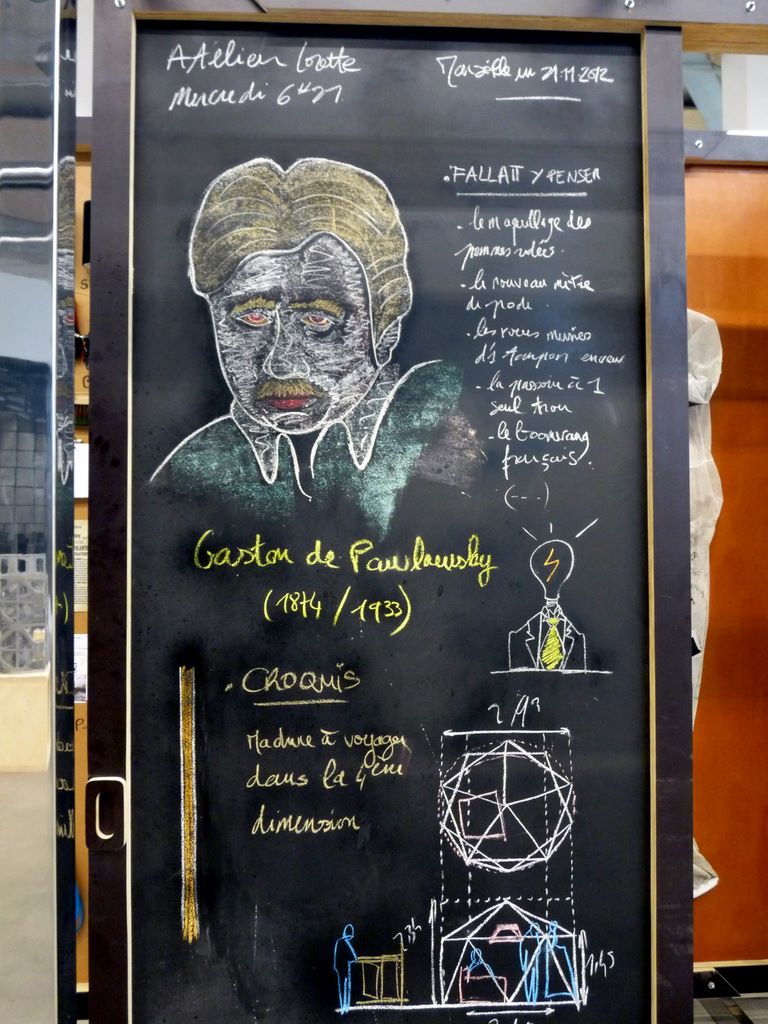 Atelier Lorette
Mercredi 6H21
Marseille le 21.11.2012
. FALLAIT Y PENSER
- le maquillage des
pommes ridées.
- le nouveau mètre
de poche.
- les roues
d'1 tampon encreur
- la passoire à 1
seul trou
- le boomerang
français.
(---)
Gaston de Pawlowsky
(1874/1933)
. CROQUIS
Machine à voyager
dans la 4ème
dimension